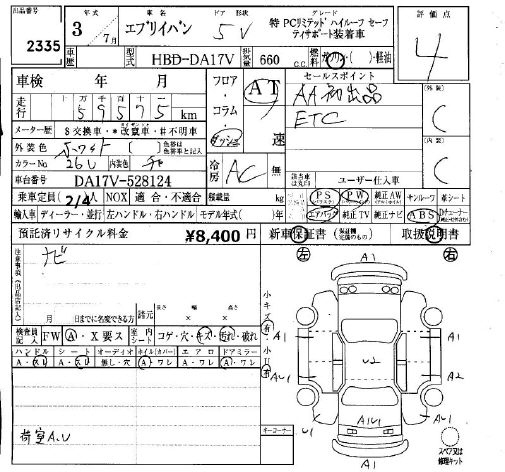 出品番号 2335
年式 3年 7月
車名 エブリイバン
ドア 形状 5V
グレード 特 PCリミテッド ハイルーフ セーフティサポート装着車
評価点 4
車歴
型式 HBD-DA17V
排気量 660 c.c.
燃料 ガソリン・( )・軽油
車検 年 月
フロア・コラム・ダッシュ
AT 速
セールスポイント
AA初出品
ETC
外装 C
内装 C
走行 59575 km
メーター歴 $交換車・*改竄車・#不明車
外装色
カラーNo. 26U 内装色
色替は色替車と記入
冷房 AC 無
車台番号 DA17V-528124
ユーザー仕入車
乗車定員 2/4人 NOX 適合・不適合 積載量 kg
該当車は丸印
PS PW 純正AW サンルーフ 革シート
エアバック 純正TV 純正ナビ ABS
輸入車 ディーラー・並行 左ハンドル・右ハンドル モデル年式( )
預託済リサイクル料金 ¥8,400円
新車保証書 取扱説明書
注意事項(出品店記入)
ナビ
月 日までに名変できる方
諸元 長さ 幅 高さ × ×
小キズ有
小凹有
検査員記入 FW A・X要ス 室内シート コゲ・穴・キズ・汚れ・破れ
ハンドル シート オーディオ ホイル(カバー) エアロ ドアミラー
無し・穴 A・ワレ A・ワレ A・ワレ
荷室A.U
キーコーナー
左 右
A1
A1
A1
AU1
U2
A2
AU1
U1
A1U1
A1
スペア又は修理キット